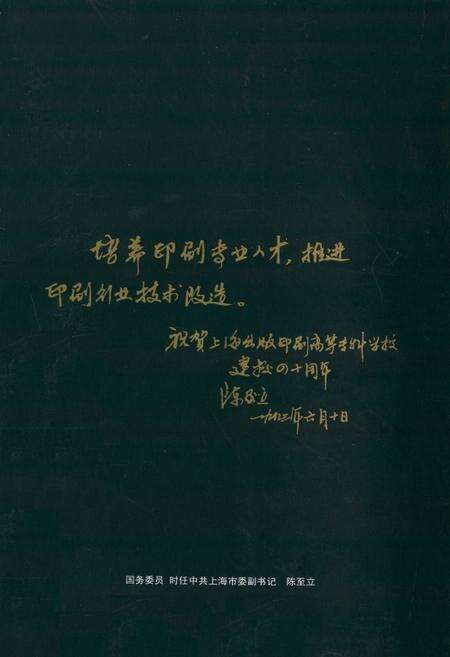 培养印刷专业人才，推进
印刷行业技术改造。
祝贺上海出版印刷高等专科学校
建校四十周年
陈至立
一九九三年六月十日
国务委员 时任中共上海市委副书记 陈至立